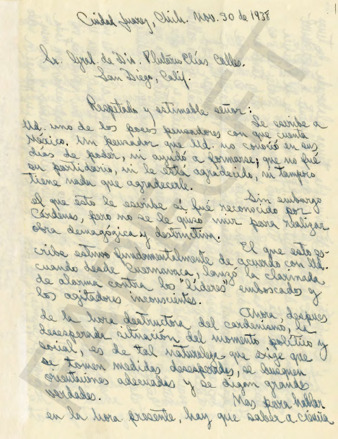 Ciudad Juarez, Chih. Nov. 30 de 1938
Sr. Gral. de Div. Plutarco Elías Calles.
San Diego, Calif.
Respetado y estimable señor:
Le escribe a
Ud. uno de los pocos pensadores con que cuenta
México. Un pensador que Ud. no conoció en sus
días de poder, ni ayudó a formarse; que no fué
su partidario, ni le está agradecido, ni tampoco
tiene nada que agradecerle.
Sin embargo
el que ésto le escribe sí fué reconocido por
Cárdenas, pero no se le quiso unir para realizar
obra demagógica y destructiva.
El que ésto es-
cribe estuvo fundamentalmente de acuerdo con Ud.
cuando desde Cuernavaca, lanzó la clarinada
de alarma contra los "líderes" emboscados y
los agitadores inconscientes.
Ahora, después
de la hora destructora del cardenismo, la
desesperada situación del momento político y
social, es de tal naturaleza que exige que
se tomen medidas desesperadas, se busquen
orientaciones adecuadas y se digan grandes
verdades.
Mas para hablar
en la hora presente, hay que saber a